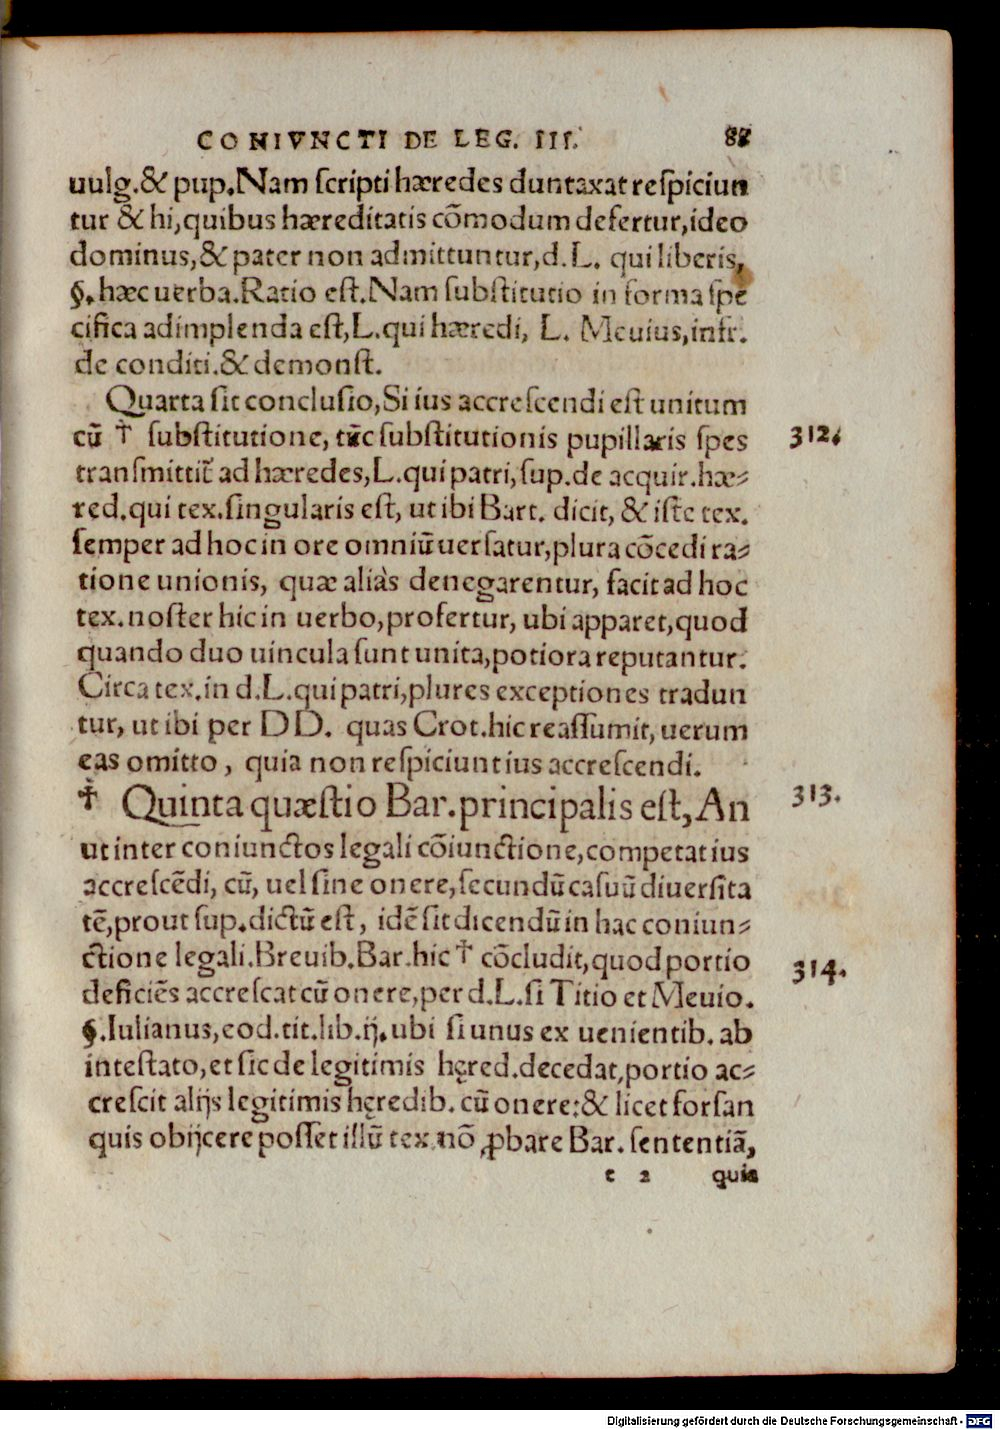 CONIVNCTI DE LEG. III. 87
uulg.& pup.Nam scripti hæredes duntaxat respiciun
tur & hi,quibus hæreditatis cõmodum defertur,ideo
dominus,& pater non admittuntur,d.L. qui liberis,
§.hæc uerba.Ratio est.Nam substitutio in forma spe
cifica adimplenda est,L.qui hæredi, L. Meuius,infr.
de conditi.& demonst.
Quarta sit conclusio,Si ius accrescendi est unitum
cũ † substitutione, tũc substitutionis pupillaris spes 312.
transmittit̃ ad hæredes,L.qui patri,sup.de acquir.hæ⸗
red.qui tex.singularis est, ut ibi Bart. dicit, & iste tex.
semper ad hoc in ore omniũ uersatur,plura cõcedi ra⸗
tione unionis, quæ aliàs denegarentur, facit ad hoc
tex.noster hic in uerbo,profertur, ubi apparet,quod
quando duo uincula sunt unita,potiora reputantur.
Circa tex.in d.L.qui patri,plures exceptiones tradun
tur, ut ibi per DD. quas Crot.hic reassumit, uerum
eas omitto, quia non respiciunt ius accrescendi.
† Quinta quæstio Bar.principalis est, An 313.
ut inter coniunctos legali cõiunctione,competat ius
accrescẽdi, cũ, uel sine onere,secundũ casuũ diuersita
tẽ,prout sup.dictũ est, idẽ sit dicendũ in hac coniun⸗
ctione legali.Breuib.Bar.hic † cõcludit,quod portio 314.
deficiẽs accrescat cũ onere,per d.L.si Titio et Meuio.
§.Iulianus,eod.tit.lib.ij.ubi si unus ex uenientib. ab
intestato,et sic de legitimis hęred.decedat,portio ac⸗
crescit alijs legitimis hęredib. cũ onere:& licet forsan
quis obijcere posset illũ tex.nõ ꝓbare Bar. sententiã,
t 2 quia
Digitalisierung gefördert durch die Deutsche Forschungsgemeinschaft - DFG